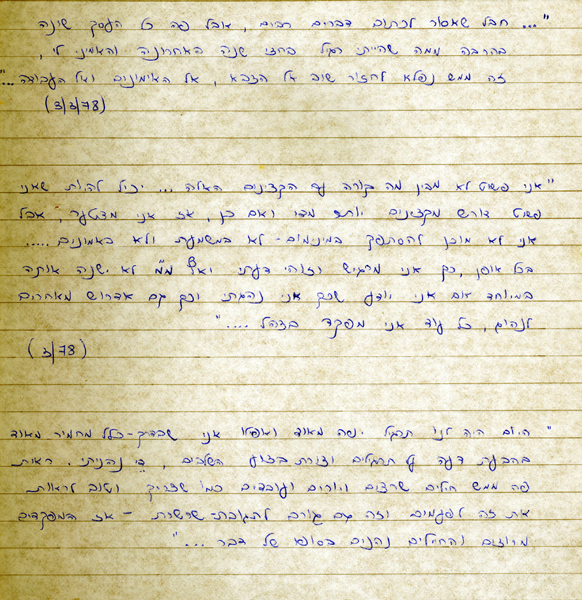 "... חבל שאסור לכתוב דברים רבים, אבל פה כל העסק שונה
בהרבה ממה שהייתי רגיל בחצי שנה האחרונה והאמיני לי,
זה ממש נפלא לחזור שוב אל הצבא, אל האימונים ואל העבודה..."
(3/3/78)
"אני פשוט לא מבין מה קורה עם הקצינים האלה... יכול להיות שאני
פשוט דורש מקצינים יותר מדי ואם כן, אז אני מצטער, אבל
אני לא מוכן להסתפק במינימום - לא במשמעת ולא באמונים.....
בכל אופן, כך אני מרגיש וזוהי דעתי ואף מ"מ לא ישנה אותה
במיוחד אם אני יודע שכך אני נהגתי וכך גם אדרוש מאחרים
לנהוג, כל עוד אני מפקד בצהל...."
(3/78)
"היום היה לנו תרגיל יפה מאוד ואפילו אני שבדרך-כלל מחמיר מאוד
בהבעת דעה על תרגילים וצורת בצוע השלבים, נהניתי. ראית
פה ממש חילים שרצים ויורים ועובדים כמו שצריך וטוב לראות
את זה לפעמים וזה גם גורם לתגובת-שרשרת - אז המפקדים
מרוצים והחיילים נהנים בסופו של דבר..."